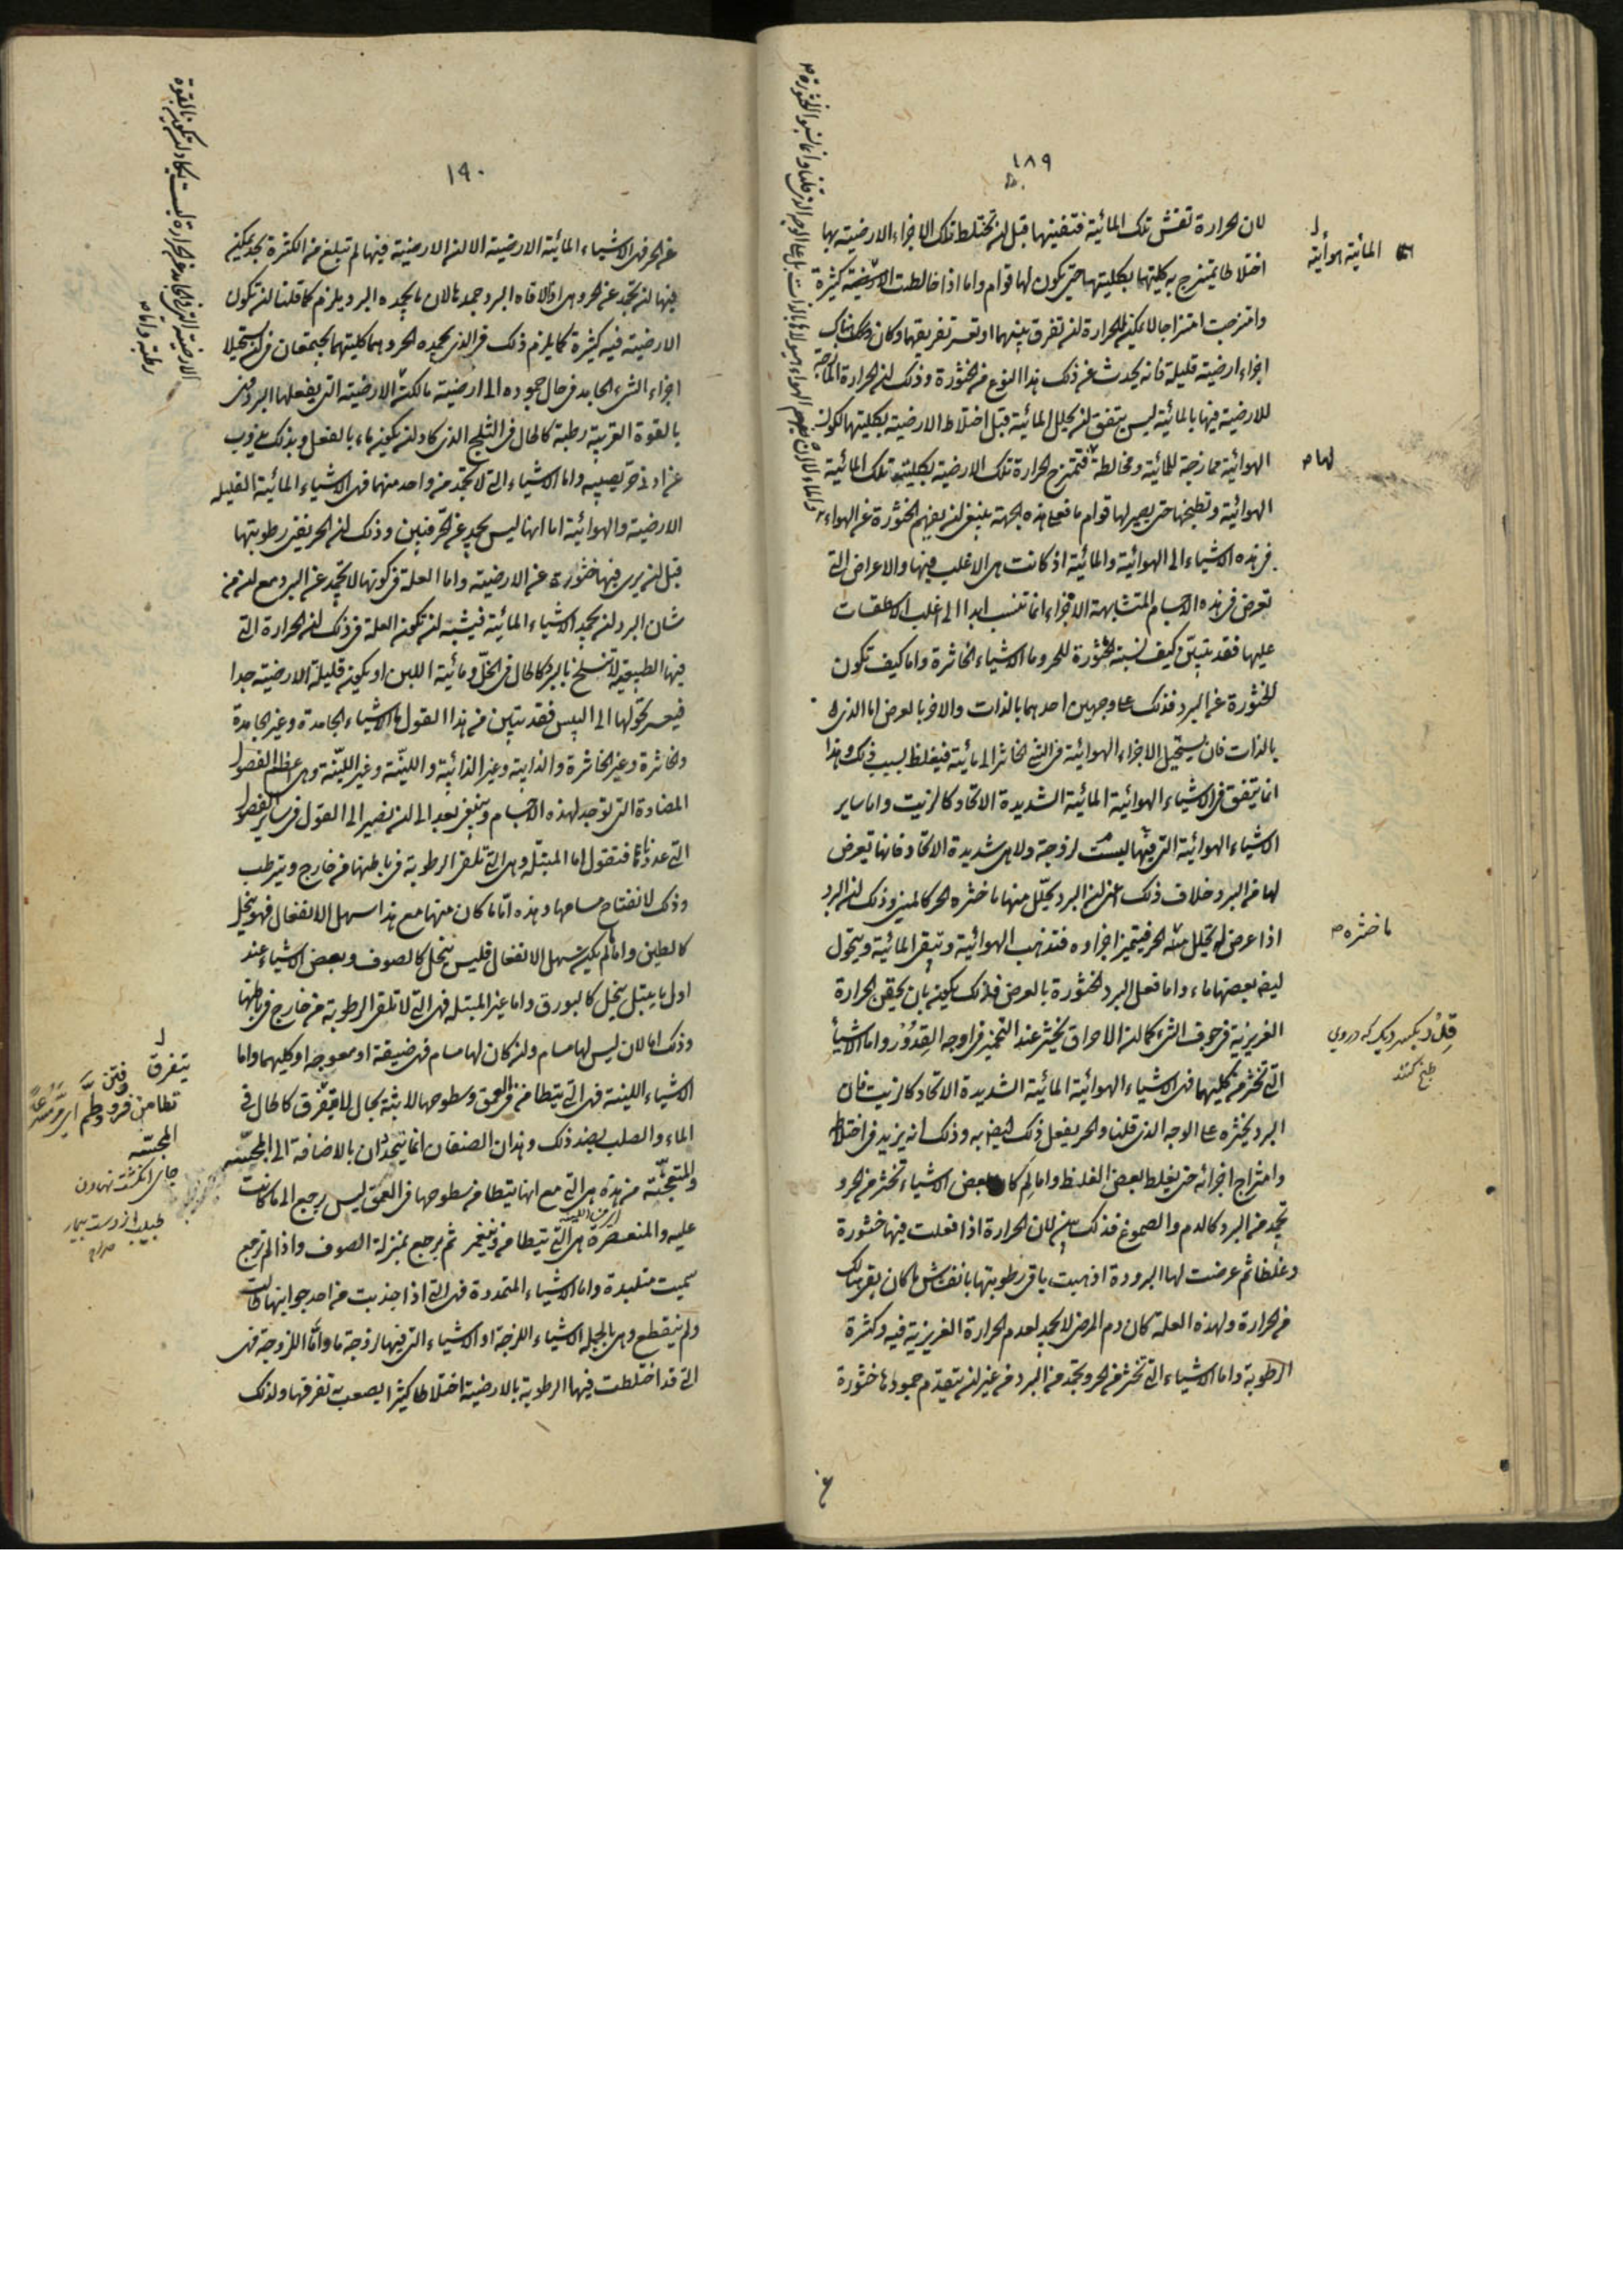 ١٨٩
لان الحرارة تفش تلك المائية فتفنيها قبل ان تختلط تلك الاجزاء الارضية بها
اختلاطا يمتزج به كليتها بكليتها حتى يكون لها قوام واما اذا خالطت الارضية كثيرة
وامتزجت امتزاجا لا يمكن الحرارة ان تفرق بينهما او تعسر تفريقهما وكان هناك
اجزاء ارضية قليلة فانه يحدث عن ذلك هذا النوع من الخثورة وذلك ان الحرارة
للارضية فيها بالمائية ليس يتفق ان يحلل المائية قبل اختلاط الارضية بكليتها لكون
الهوائية ممازجة للمائية ومخالطة فتمزج الحرارة تلك الارضية بكلية تلك المائية
الهوائية وتطبخها حتى يصير لها قوام ما فعلى هذه الجهة ينبغى ان يفهم الخثورة عن الهواء
فى هذه الاشياء الى الهوائية والمائية اذ كانت هى الاغلب فيها والاعراض التى
تعرض فى هذه الاجسام المتشابهة الاجزاء انما تنسب ابدا الى اغلب الاسطقسات
عليها فقد تبين كيف نسبة الخثورة للحر وما الاشياء الخاثرة واما كيف تكون
الخثورة عن البرد فذلك على وجهين احدهما بالذات والاخر بالعرض اما الذى
بالذات فان يستحيل الاجزاء الهوائية فى الشئ الخاثر الى مائية فيغلظ لسبب ذلك وهذا
انما يتفق فى الاشياء الهوائية المائية الشديدة الاتحاد كالزيت واما ساير
الاشياء الهوائية التى فيها ليست لزوجة ولا هى شديدة الاتحاد فانها تعرض
لها من البرد خلاف ذلك اعنى ان البرد يحلل منها ما خثره الحر كالمنى وذلك ان البرد
اذا عرض له تحلل منه الحر فيتميز اجزاؤه فتذهب الهوائية وتبقى المائية ويتحول
ايضا بعضها ماء واما فعل البرد الخثورة بالعرض فذلك يكون بان يحقن الحرارة
الغريزية فى جوف الشئ كما ان الامراق يخثر عند التخمير فى اوجه القدور واما الاشياء
التى تخثر من كليهما فهى الاشياء الهوائية المائية الشديدة الاتحاد كالزيت فان
البرد يخثره على الوجه الذى قلنا والحر يفعل ذلك ايضا به وذلك انه يزيد فى اختلاط
وامتزاج اجزائه حتى يغلظ بعض الغلظ واما لم كان بعض الاشياء تخثر من الحر و
تجمد من البرد كالدم والصموغ فذلك بين لان الحرارة اذا فعلت فيها خثورة
وغلظا ثم عرضت لها البرودة اذهبت باقى رطوبتها بانفشاش ما كان بقى هنالك
من الحرارة ولهذه العلة كان دم المرضى لا يجمد لعدم الحرارة الغريزية فيه وكثرة
الرطوبة واما الاشياء التى تخثر من الحر وتجمد من البرد من غير ان يتقدم جمودها خثورة
المائية هوائية
لها
ما خثره
قدر بكسر ديك كه دروى
طبخ كنند
١٩٠
عن الحر فهى الاشياء المائية الارضية الا ان الارضية فيها لم تبلغ من الكثرة بحد يمكن
فيها ان تجمد عن الحر وهى اذا لاقاها البرد جمدها لان ما يجمده البرد يلزم كما قلنا ان تكون
الارضية فيه كثيرة كما يلزم ذلك فى الذى يجمده الحر وهما كليتهما يجتمعان فى ان يستحيلا
اجزاء الشئ الجامد فى حال جموده الى ارضية لكن الارضية التى يفعلها البرد فهى
بالقوة القريبة رطبة كالحال فى الثلج الذى كاد ان يكون ماء بالفعل وبذلك يذوب
عن ادنى حر يصيبه واما الاشياء التى لا تجمد من واحد منهما فهى الاشياء المائية القليلة
الارضية والهوائية اما انها ليس تجمد عن الحر فبين وذلك ان الحر يفنى رطوبتها
قبل ان يرى فيها خثورة عن الارضية واما العلة فى كونها لا تجمد عن البرد مع ان من
شان البرد ان يجمد الاشياء المائية فيشبه ان تكون العلة فى ذلك ان الحرارة التى
فيها الطبيعية لا تنسلخ بالبرد كالحال فى الخل ومائية اللبن او يكون قليلة الارضية جدا
فيعسر تحولها الى اليبس فقد تبين من هذا القول ما الاشياء الجامدة وغير الجامدة
والخاثرة وغير الخاثرة والذايبة وغير الذائبة واللينة وغير اللينة وهى عظام الفصول
المضادة التى توجد لهذه الاجسام وينبغى بعد الى ان نصير الى القول فى ساير الفصول
التى عددناها فنقول اما المبتلة وهى التى تلقى الرطوبة فى باطنها من خارج ويترطب
وذلك لانفتاح مسامها وهذه اما ما كان منها مع هذا سهل الانفعال فهو ينحل
كالطين واما لم يكن سهل الانفعال فليس ينحل كالصوف وبعض الاشياء عند
اول ما يبتل ينحل كالبورق واما غير المبتلة فهى التى لا تلقى الرطوبة من خارج فى باطنها
وذلك اما لان ليس لها مسام وان كان لها مسام فهى ضيقة او معوجة او كليهما واما
الاشياء اللينة فهى التى يتطامن فى العمق وسطوحها لابثة بحال لا يتفرق كالحال فى
الماء والصلب بضد ذلك وهذان الصنفان انما يتحددان بالاضافة الى المجسة
والمتعجنة من هذه هى التى مع انها يتطامن سطوحها فى العمق ليس رجع الى ما كانت
عليه والمنعصرة هى التى تتطامن وينغمز ثم يرجع بمنزلة الصوف واذا لم ترجع
سميت متلبدة واما الاشياء المتمددة فهى التى اذا جذبت من احد جوانبها طالت
ولم ينقطع وهى بالجملة الاشياء اللزجة او الاشياء التى فيها لزوجة ما واما اللزوجة فهى
التى قد اختلطت فيها الرطوبة بالارضية اختلاطا كثيرا يصعب به تفرقها ولذلك
يتفرق
تطامن
المجسة
جاى انكشت نهادن
طبيب از دست بيمار